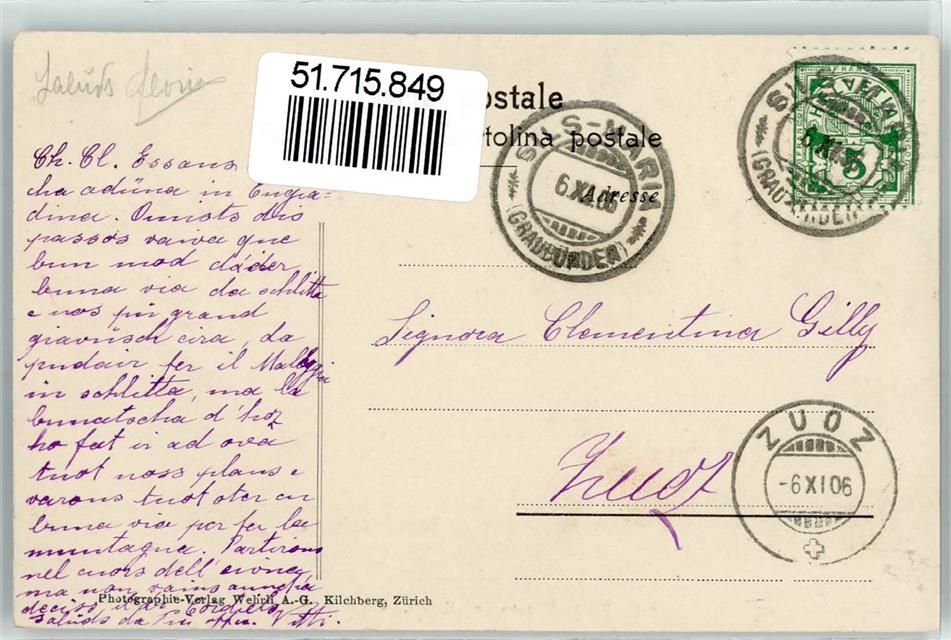 Saluds
51.715.849
postale
tolina postale
Adresse
SILS-MARIA
6.XI.06
(GRAUBÜNDEN)
SILS-MARIA
6.XI.06
(GRAUBÜNDEN)
FRANCO
HELVETIA
5
Ch. Cl. Essans
cha adüna in Engia-
dina. Quists dis
passos vaiva que
bun mod d'avair
buna via da schlitta
e nos pü grand
giavüsch eira, da
pudair fer il Maloggia
in schlitta, ma la
d'hoz
ho fat ir ad ova
tuot noss plans e
varons tuot oter cu
buna via per fer la
muntagna. Partirons
nel cuors dell'
ma non vains auncha
decis il di. Cordiels
Saluds da
Signora Clementina Gilly
Zuoz
ZUOZ
-6 XI 06
Photographie-Verlag Wehrli A.-G. Kilchberg, Zürich